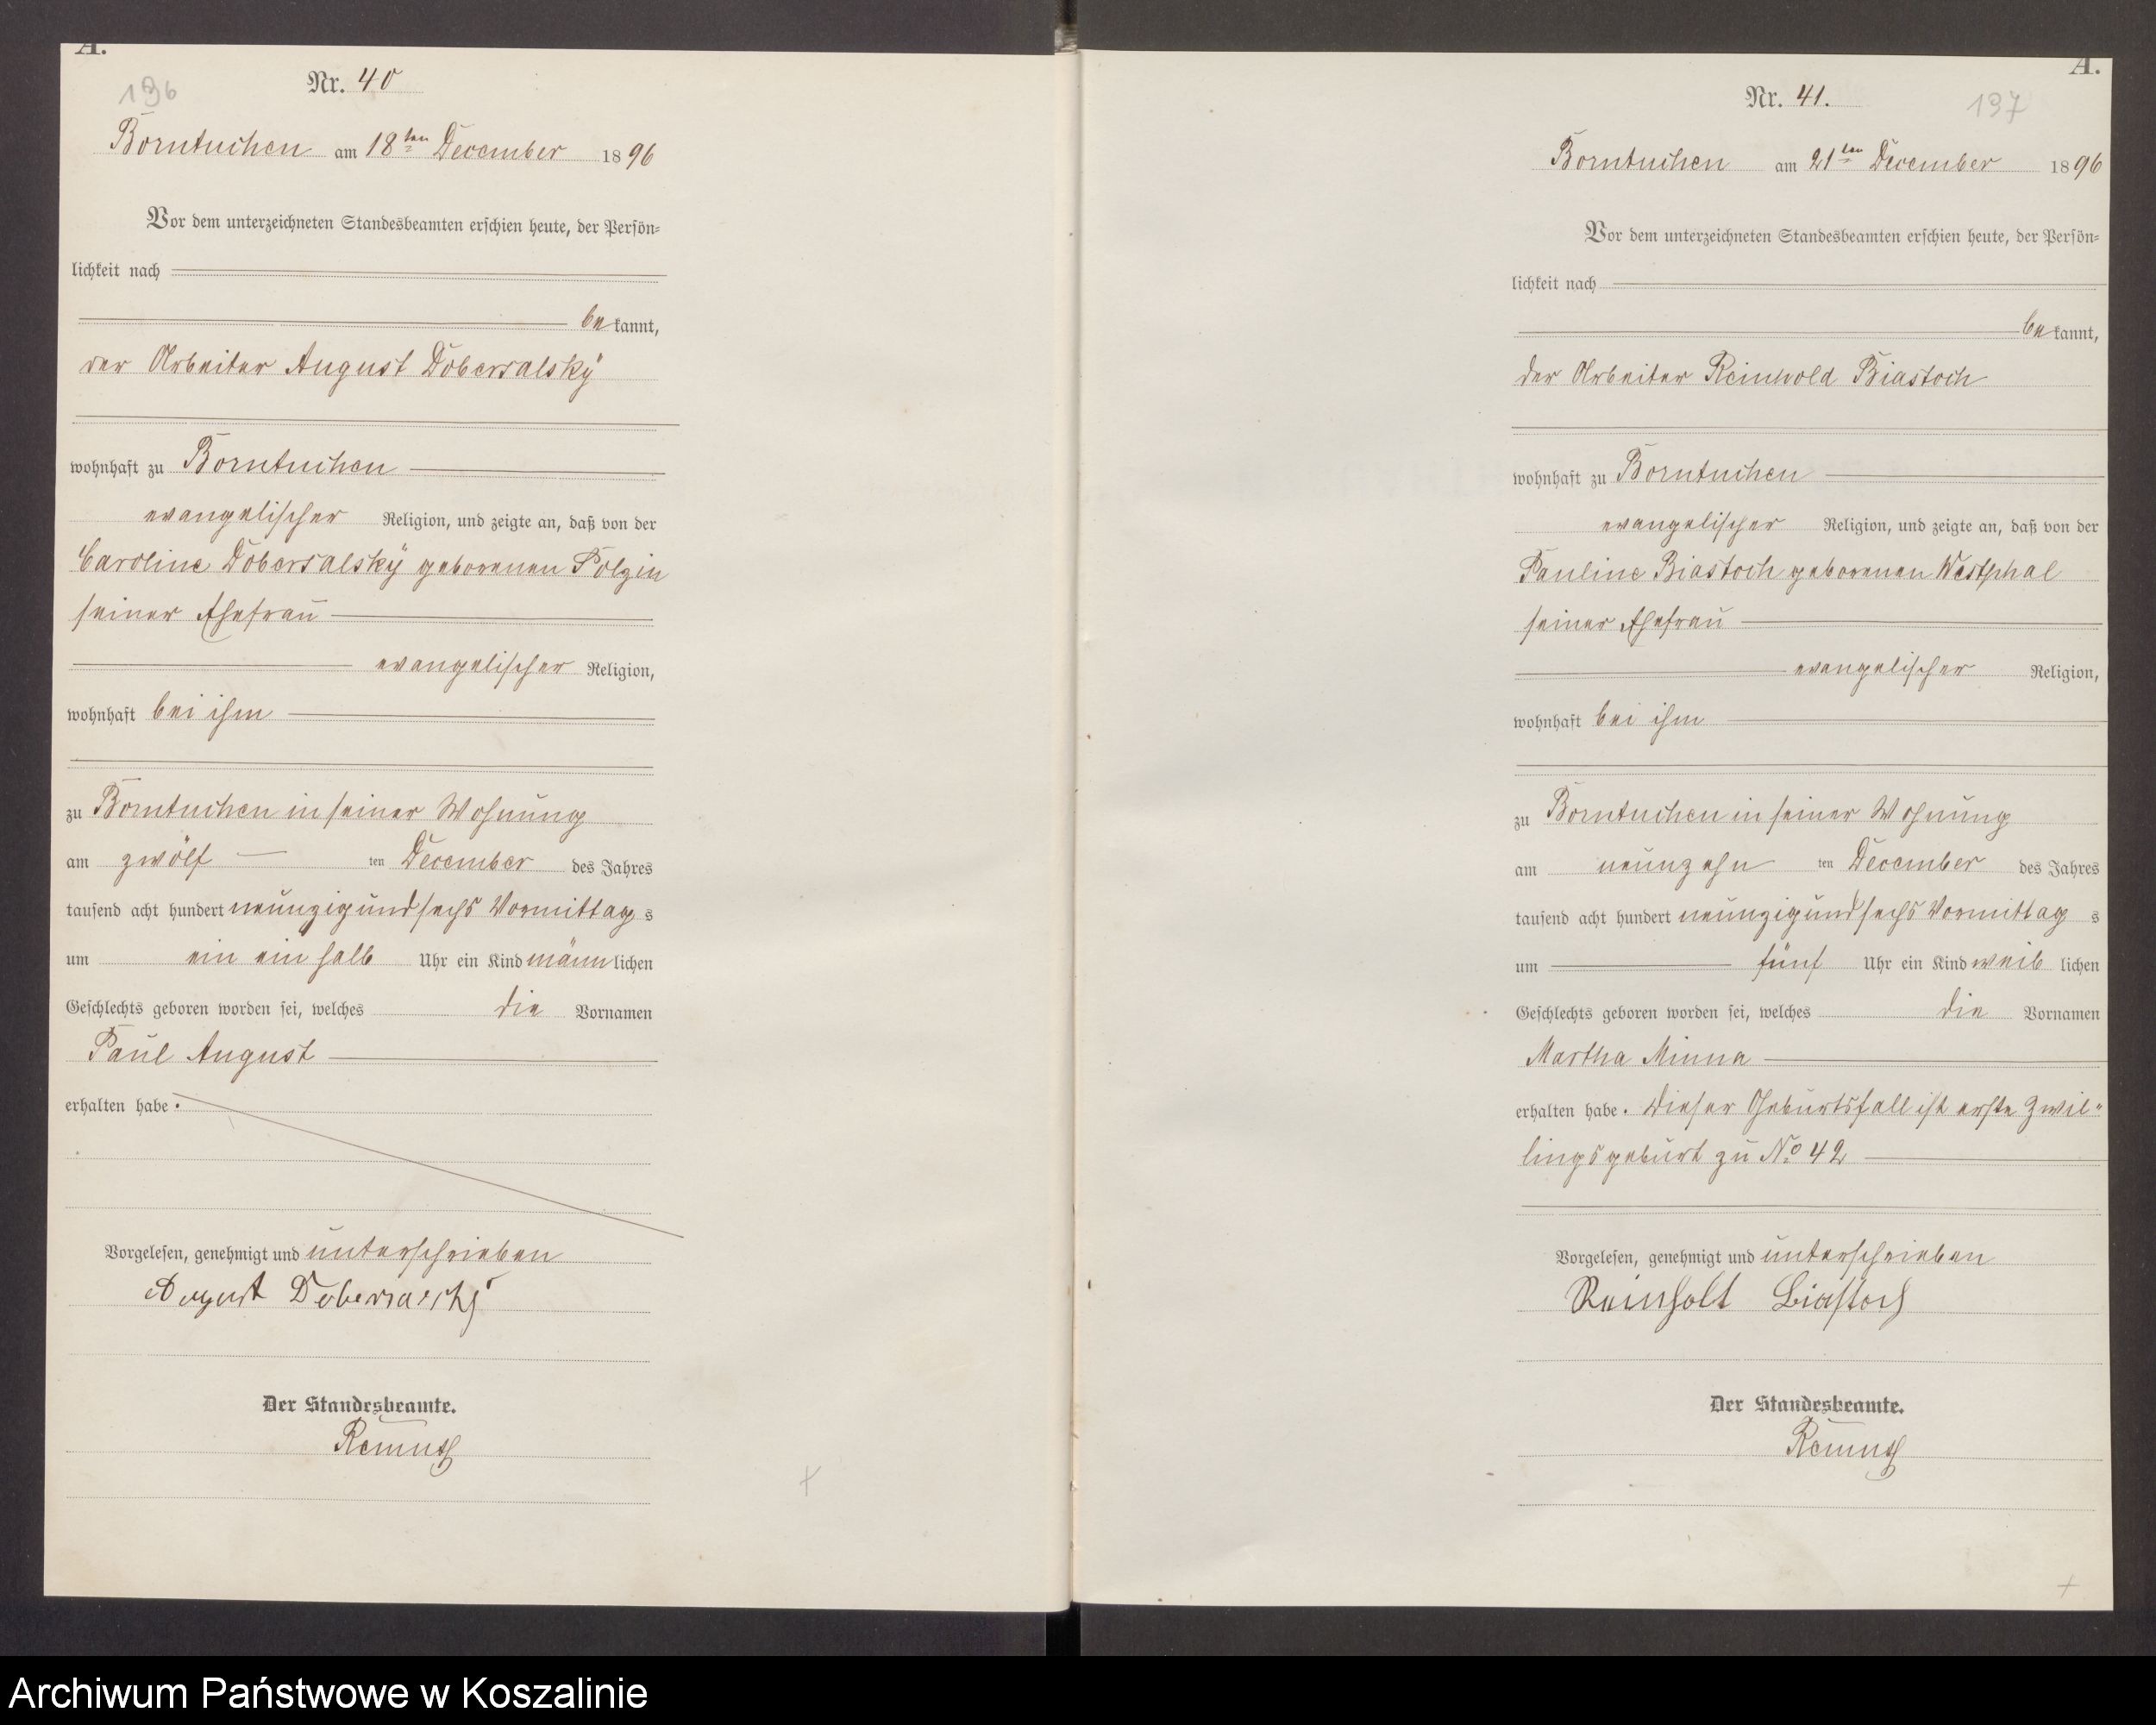 A.
136
Nr. 40
Borntuchen am 18ten December 1896
Vor dem unterzeichneten Standesbeamten erschien heute, der Persön-
lichkeit nach
bekannt,
der Arbeiter August Dobersalsky
wohnhaft zu Borntuchen
evangelischer Religion, und zeigte an, daß von der
Caroline Dobersalsky geborenen Polzin
seiner Ehefrau
evangelischer Religion,
wohnhaft bei ihm
zu Borntuchen in seiner Wohnung
am zwölften December des Jahres
tausend acht hundert neunzig und sechs Vormittags
um ein ein halb Uhr ein Kind männlichen
Geschlechts geboren worden sei, welches die Vornamen
Paul August
erhalten habe.
Vorgelesen, genehmigt und unterschrieben
August
Der Standesbeamte.
Remus
A.
137
Nr. 41.
Borntuchen am 21ten December 1896
Vor dem unterzeichneten Standesbeamten erschien heute, der Persön-
lichkeit nach
bekannt,
der Arbeiter Reinhold Biastoch
wohnhaft zu Borntuchen
evangelischer Religion, und zeigte an, daß von der
Pauline Biastoch geborenen Westphal
seiner Ehefrau
evangelischer Religion,
wohnhaft bei ihm
zu Borntuchen in seiner Wohnung
am neunzehnten December des Jahres
tausend acht hundert neunzig und sechs Vormittags
um fünf Uhr ein Kind weiblichen
Geschlechts geboren worden sei, welches die Vornamen
Martha Minna
erhalten habe. Dieser Geburtsfall ist erste Zwil-
lingsgeburt zu No 42
Vorgelesen, genehmigt und unterschrieben
Reinholt Biastoch
Der Standesbeamte.
Remus
Archiwum Państwowe w Koszalinie